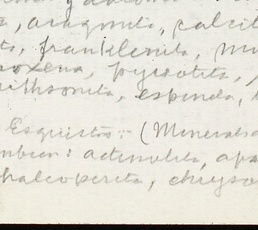 , aragonita, calcit
, franklinita, mi
oxena, pyrotita,
ithsonita, espinela,
Esquistos:- (Minerals
mbien: actinolita, apa
halcopirita, chryso